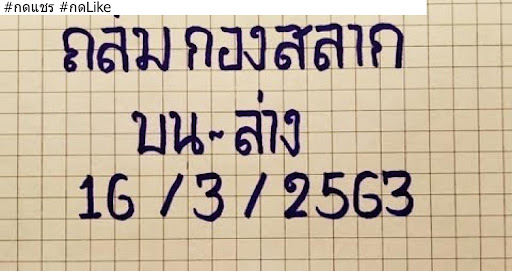 #กดแชร #กดLike
ถล่ม กองสลาก
บน~ล่าง
16/3/2563